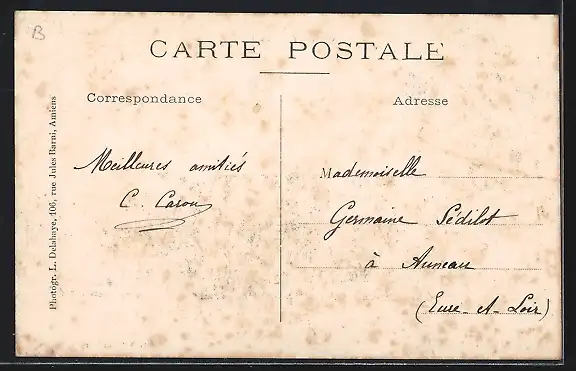 B
CARTE POSTALE
Correspondance
Adresse
Meilleures amitiés
C. Carou
Mademoiselle
Germaine Sédilot
à Auneau
(Eure-et-Loir)
Photogr. L. Delahaye, 106, rue Jules Barni, Amiens